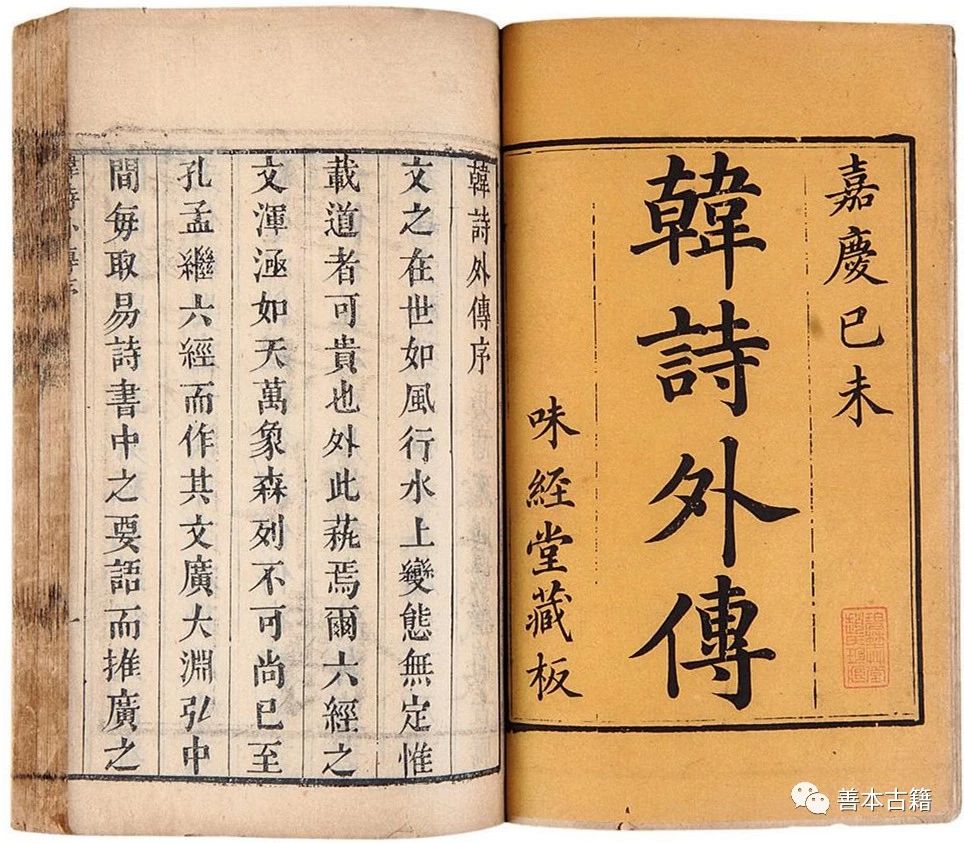 嘉慶已未
韓詩外傳
味經堂藏板
韓詩外傳序
文之在世如風行水上變態無定惟
載道者可貴也外此蓺焉爾六經之
文渾涵如天萬象森列不可尚已至
孔孟繼六經而作其文廣大淵弘中
間每取易詩書中之要語而推廣之
善本古籍